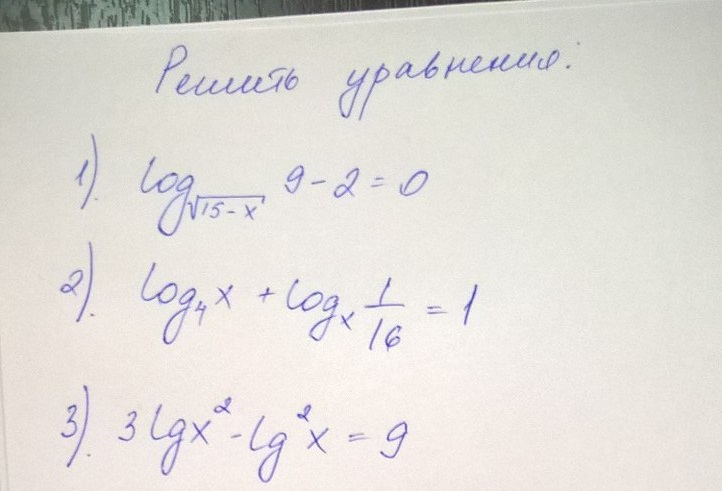 Решить уравнения:
1). log√(15-x) 9-2=0
2). log₄x + logₓ 1/16 = 1
3). 3lgx²-lg²x=9